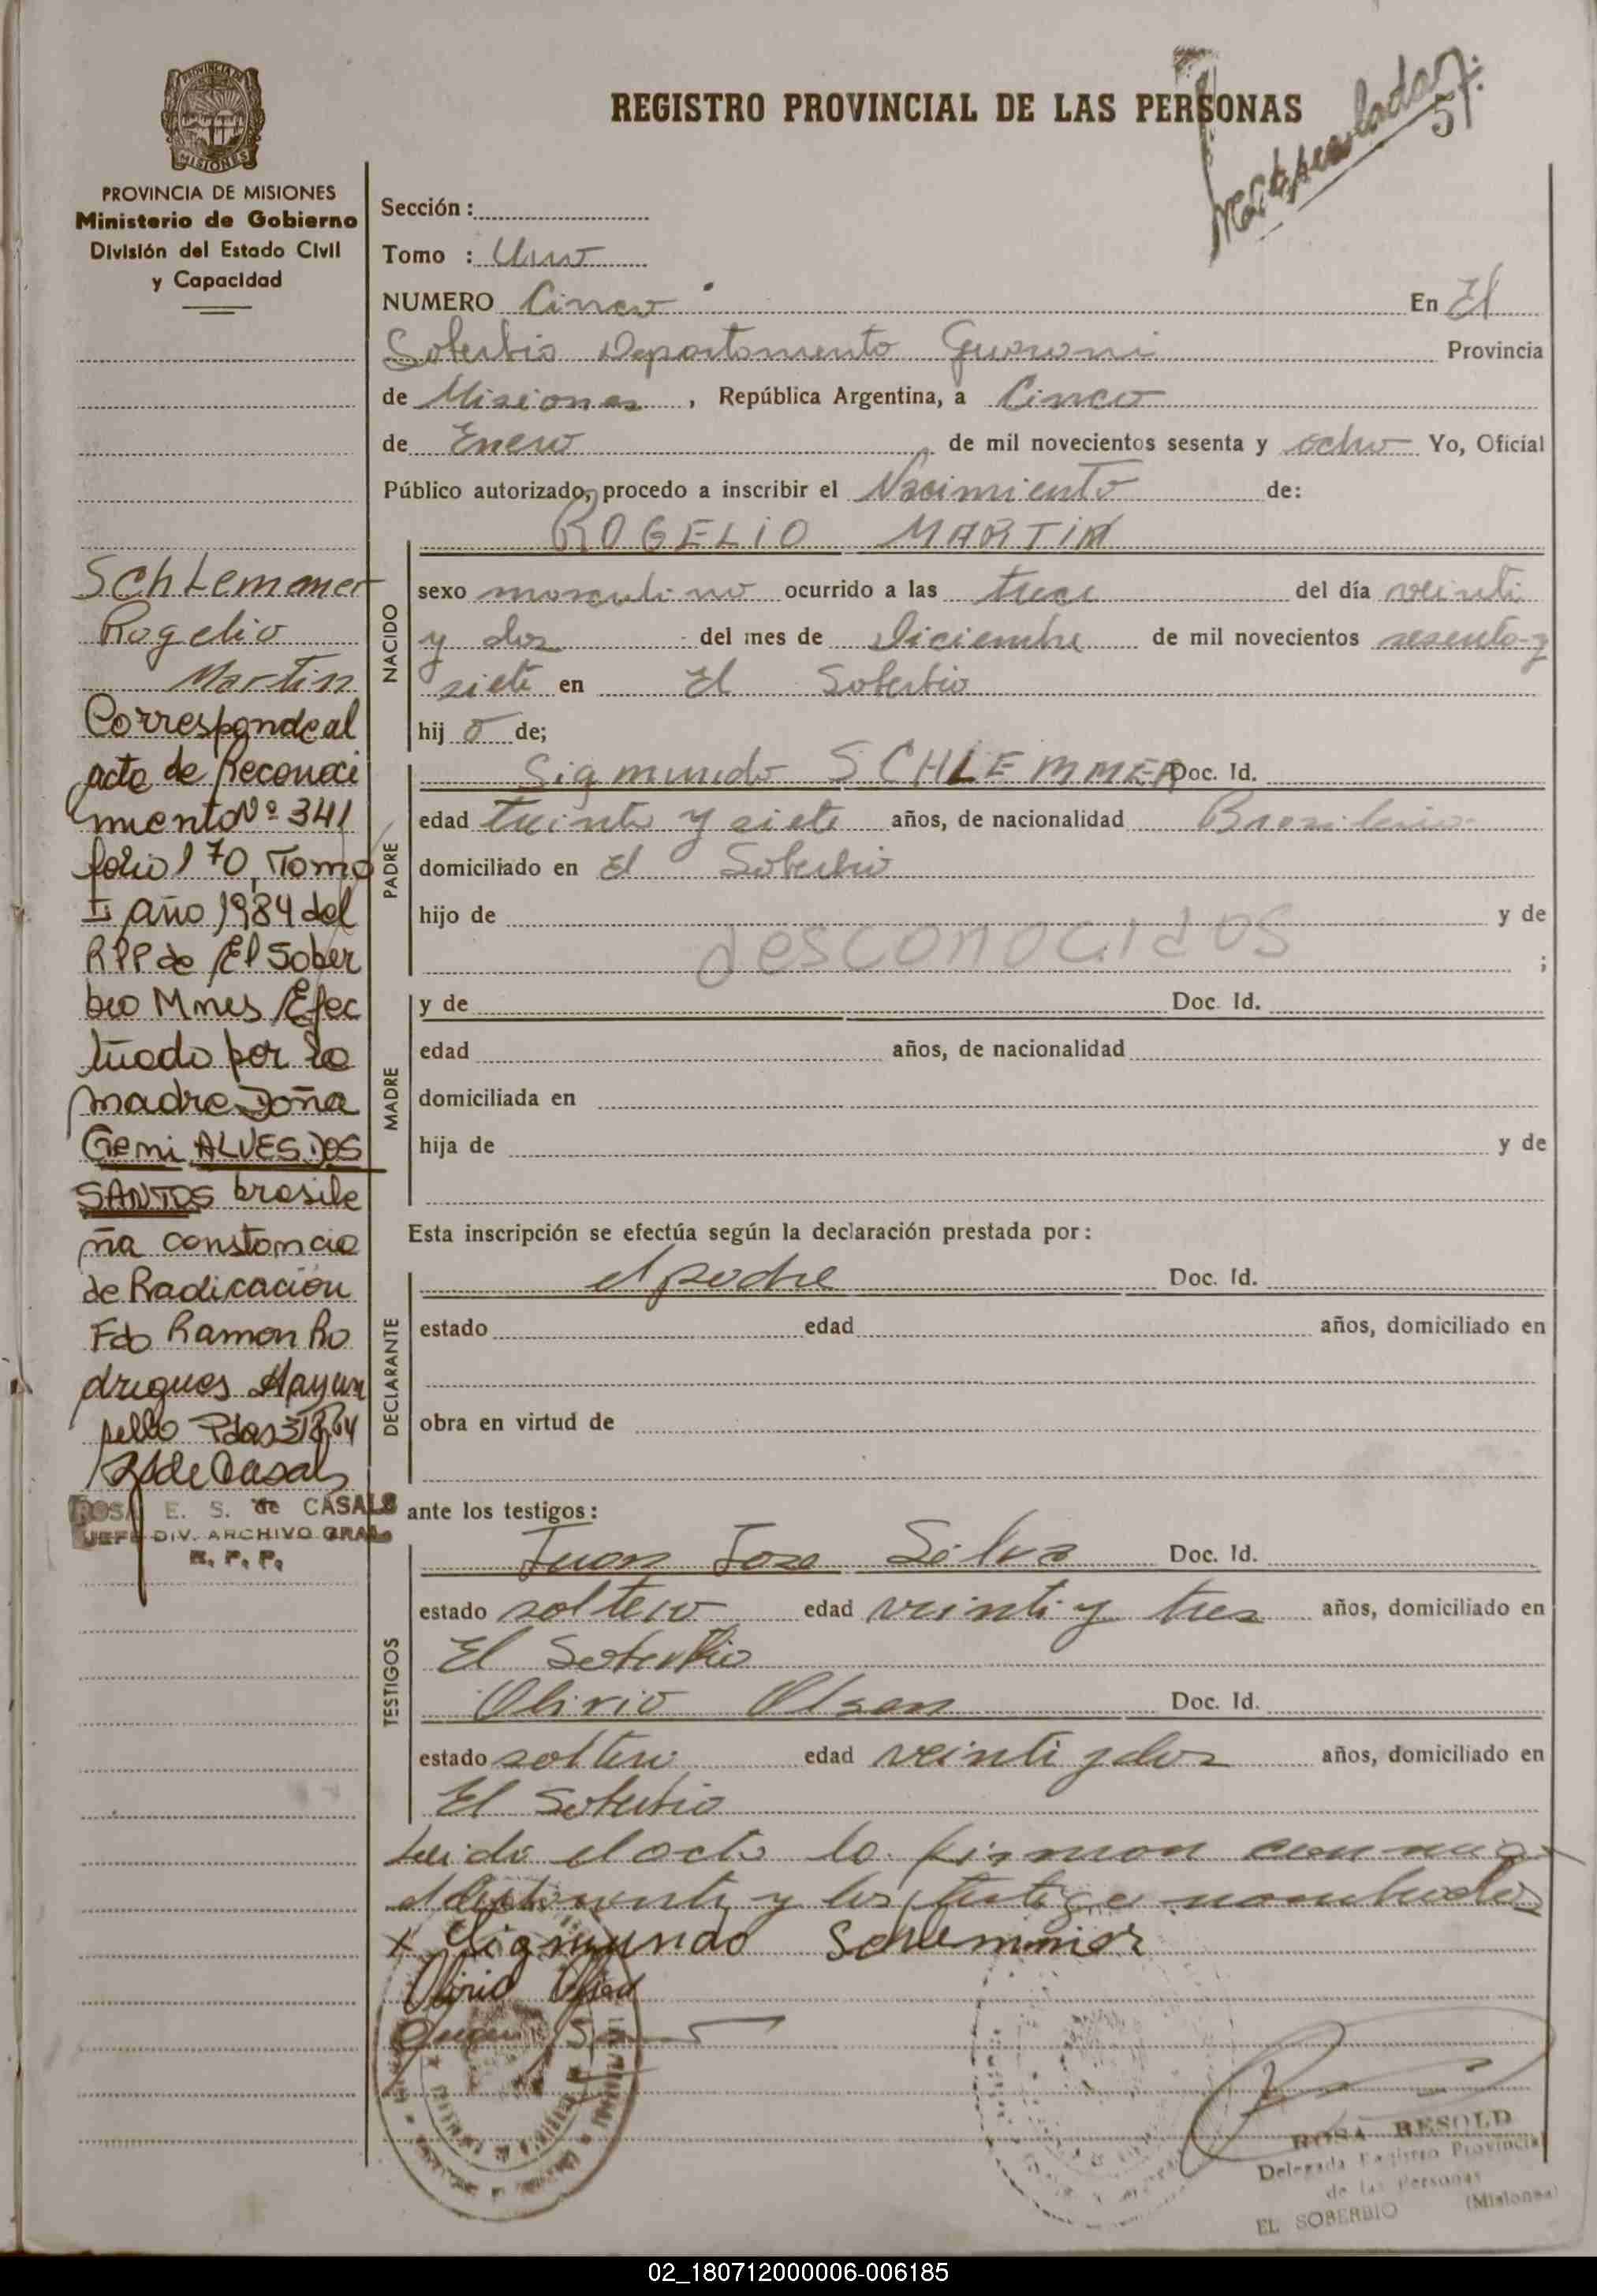 REGISTRO PROVINCIAL DE LAS PERSONAS
57.
PROVINCIA DE MISIONES
Ministerio de Gobierno
División del Estado Civil
y Capacidad
Sección :
Tomo : Uno
NUMERO Cinco En El
Soberbio Departamento Guarani Provincia
de Misiones , República Argentina, a Cinco
de Enero de mil novecientos sesenta y ocho Yo, Oficial
Público autorizado, procedo a inscribir el Nacimiento de:
ROGELIO MARTIN
NACIDO
sexo masculino ocurrido a las trece del día veinti
y dos del mes de Diciembre de mil novecientos sesenta y
siete en El Soberbio
hij o de;
PADRE
Sigmundo SCHLEMMER Doc. Id.
edad treinta y siete años, de nacionalidad Brasilero
domiciliado en El Soberbio
hijo de y de
desconocidos ;
MADRE
y de Doc. Id.
edad años, de nacionalidad
domiciliada en
hija de y de
Esta inscripción se efectúa según la declaración prestada por :
DECLARANTE
el padre Doc. Id.
estado edad años, domiciliado en
obra en virtud de
ante los testigos :
TESTIGOS
Juan Jose Silva Doc. Id.
estado soltero edad veinti y tres años, domiciliado en
El Soberbio
Olirio Olsen Doc. Id.
estado soltero edad veinti y dos años, domiciliado en
El Soberbio
Leida el acta la firman conmigo
el declarante y los testigos nombrados
x Sigmundo Schlemmer
Olirio Olsen
Juan
ROSA RESOLD
Delegada Registro Provincial
de las Personas
EL SOBERBIO (Misiones)
Schlemmer
Rogelio
Martin
Corresponde al
acta de Reconoci
miento Nº 341
folio 170, Tomo
I año 1984 del
RPP de El Sober
bio Mnes Efec
tuado por la
madre Doña
Geni ALVES DOS
SANTOS brasile
ña constancia
de Radicacion
Fdo Ramon Ro
drigues Hay un
sello Pdas
RSde Casals
ROSA E. S. de CASALS
JEFE DIV. ARCHIVO GRAL.
R. P. P.
02_180712000006-006185